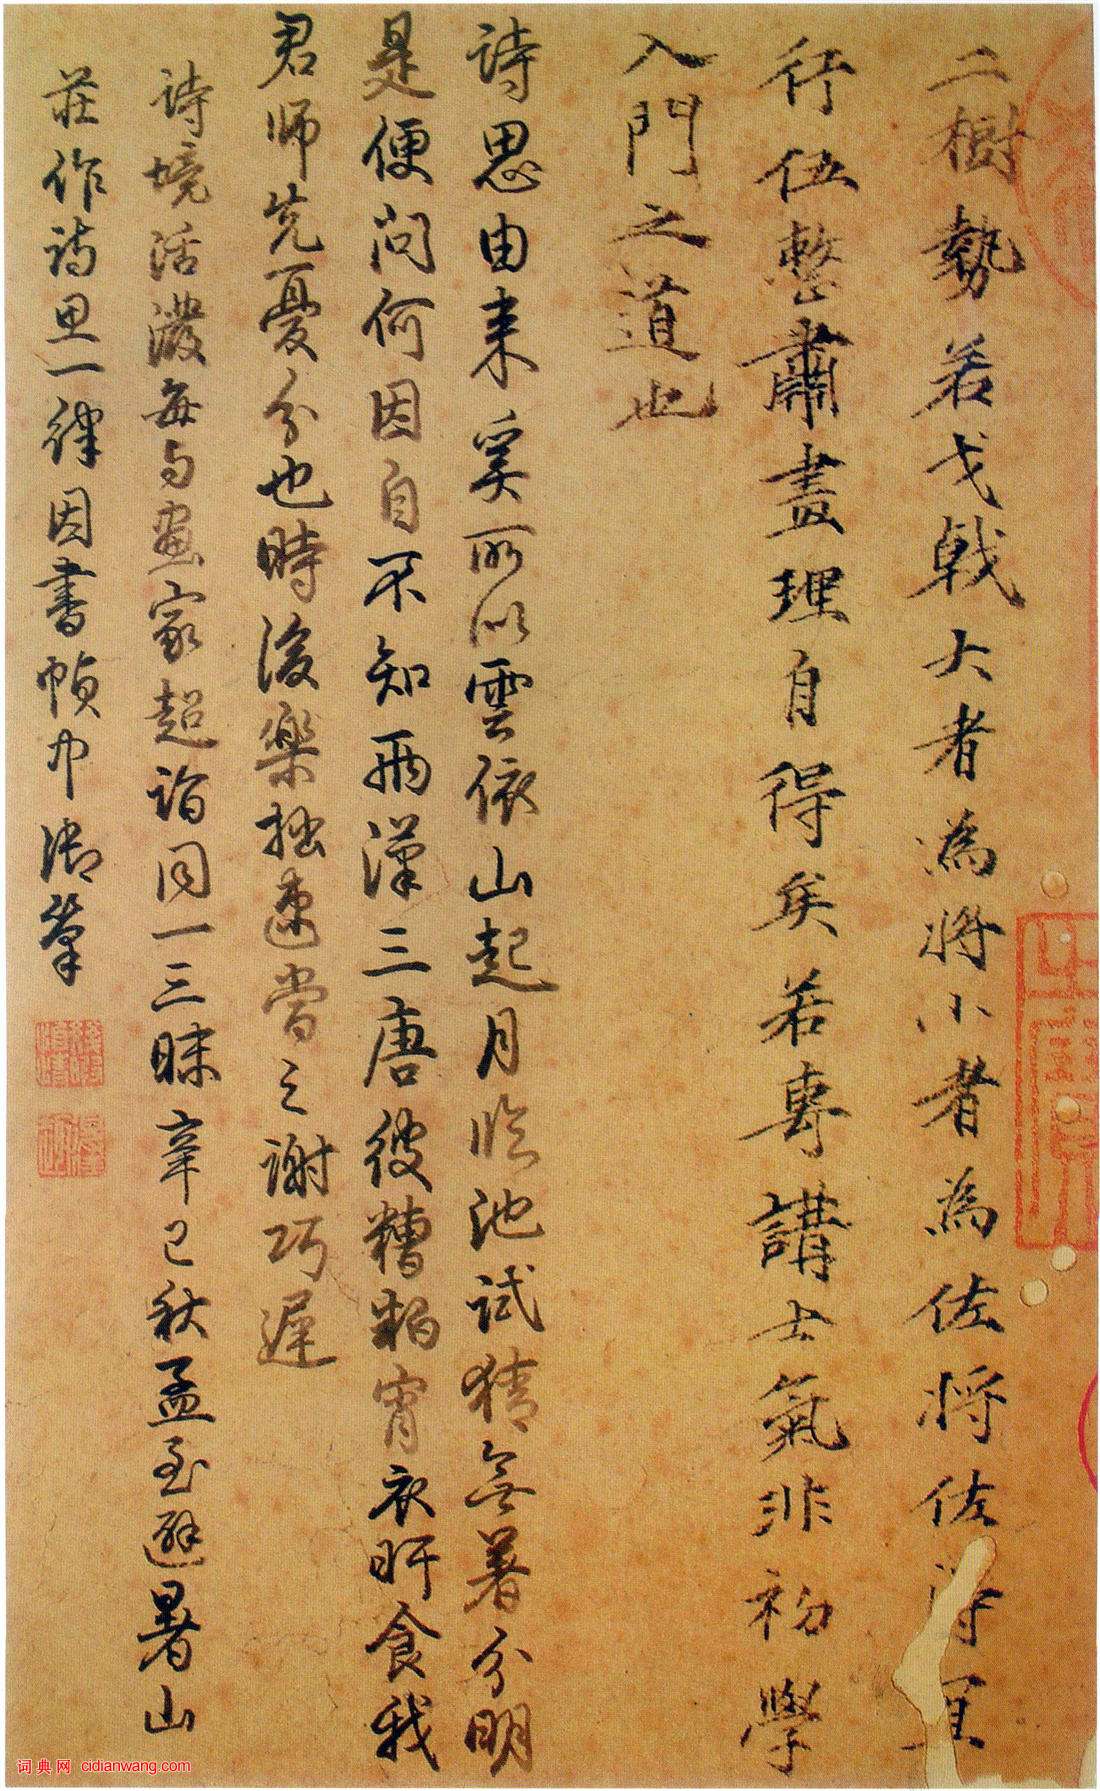 二樹勢若戈戟大者為將小者為佐將佐得宜
行伍整肅畫理自得矣若專講士氣非初學
入門之道也
詩思由来奚所以雲依山起月临池試猜無著分明
是便问何因自不知两漢三唐彼糟粕宵衣旰食我
君师先憂分也時後樂拙速嘗之謝巧遲
詩境活潑每与畫家超詣同一三昧辛巳秋孟至避暑山
莊作詩思一律因書幀中御筆
词典网 cidianwang.com